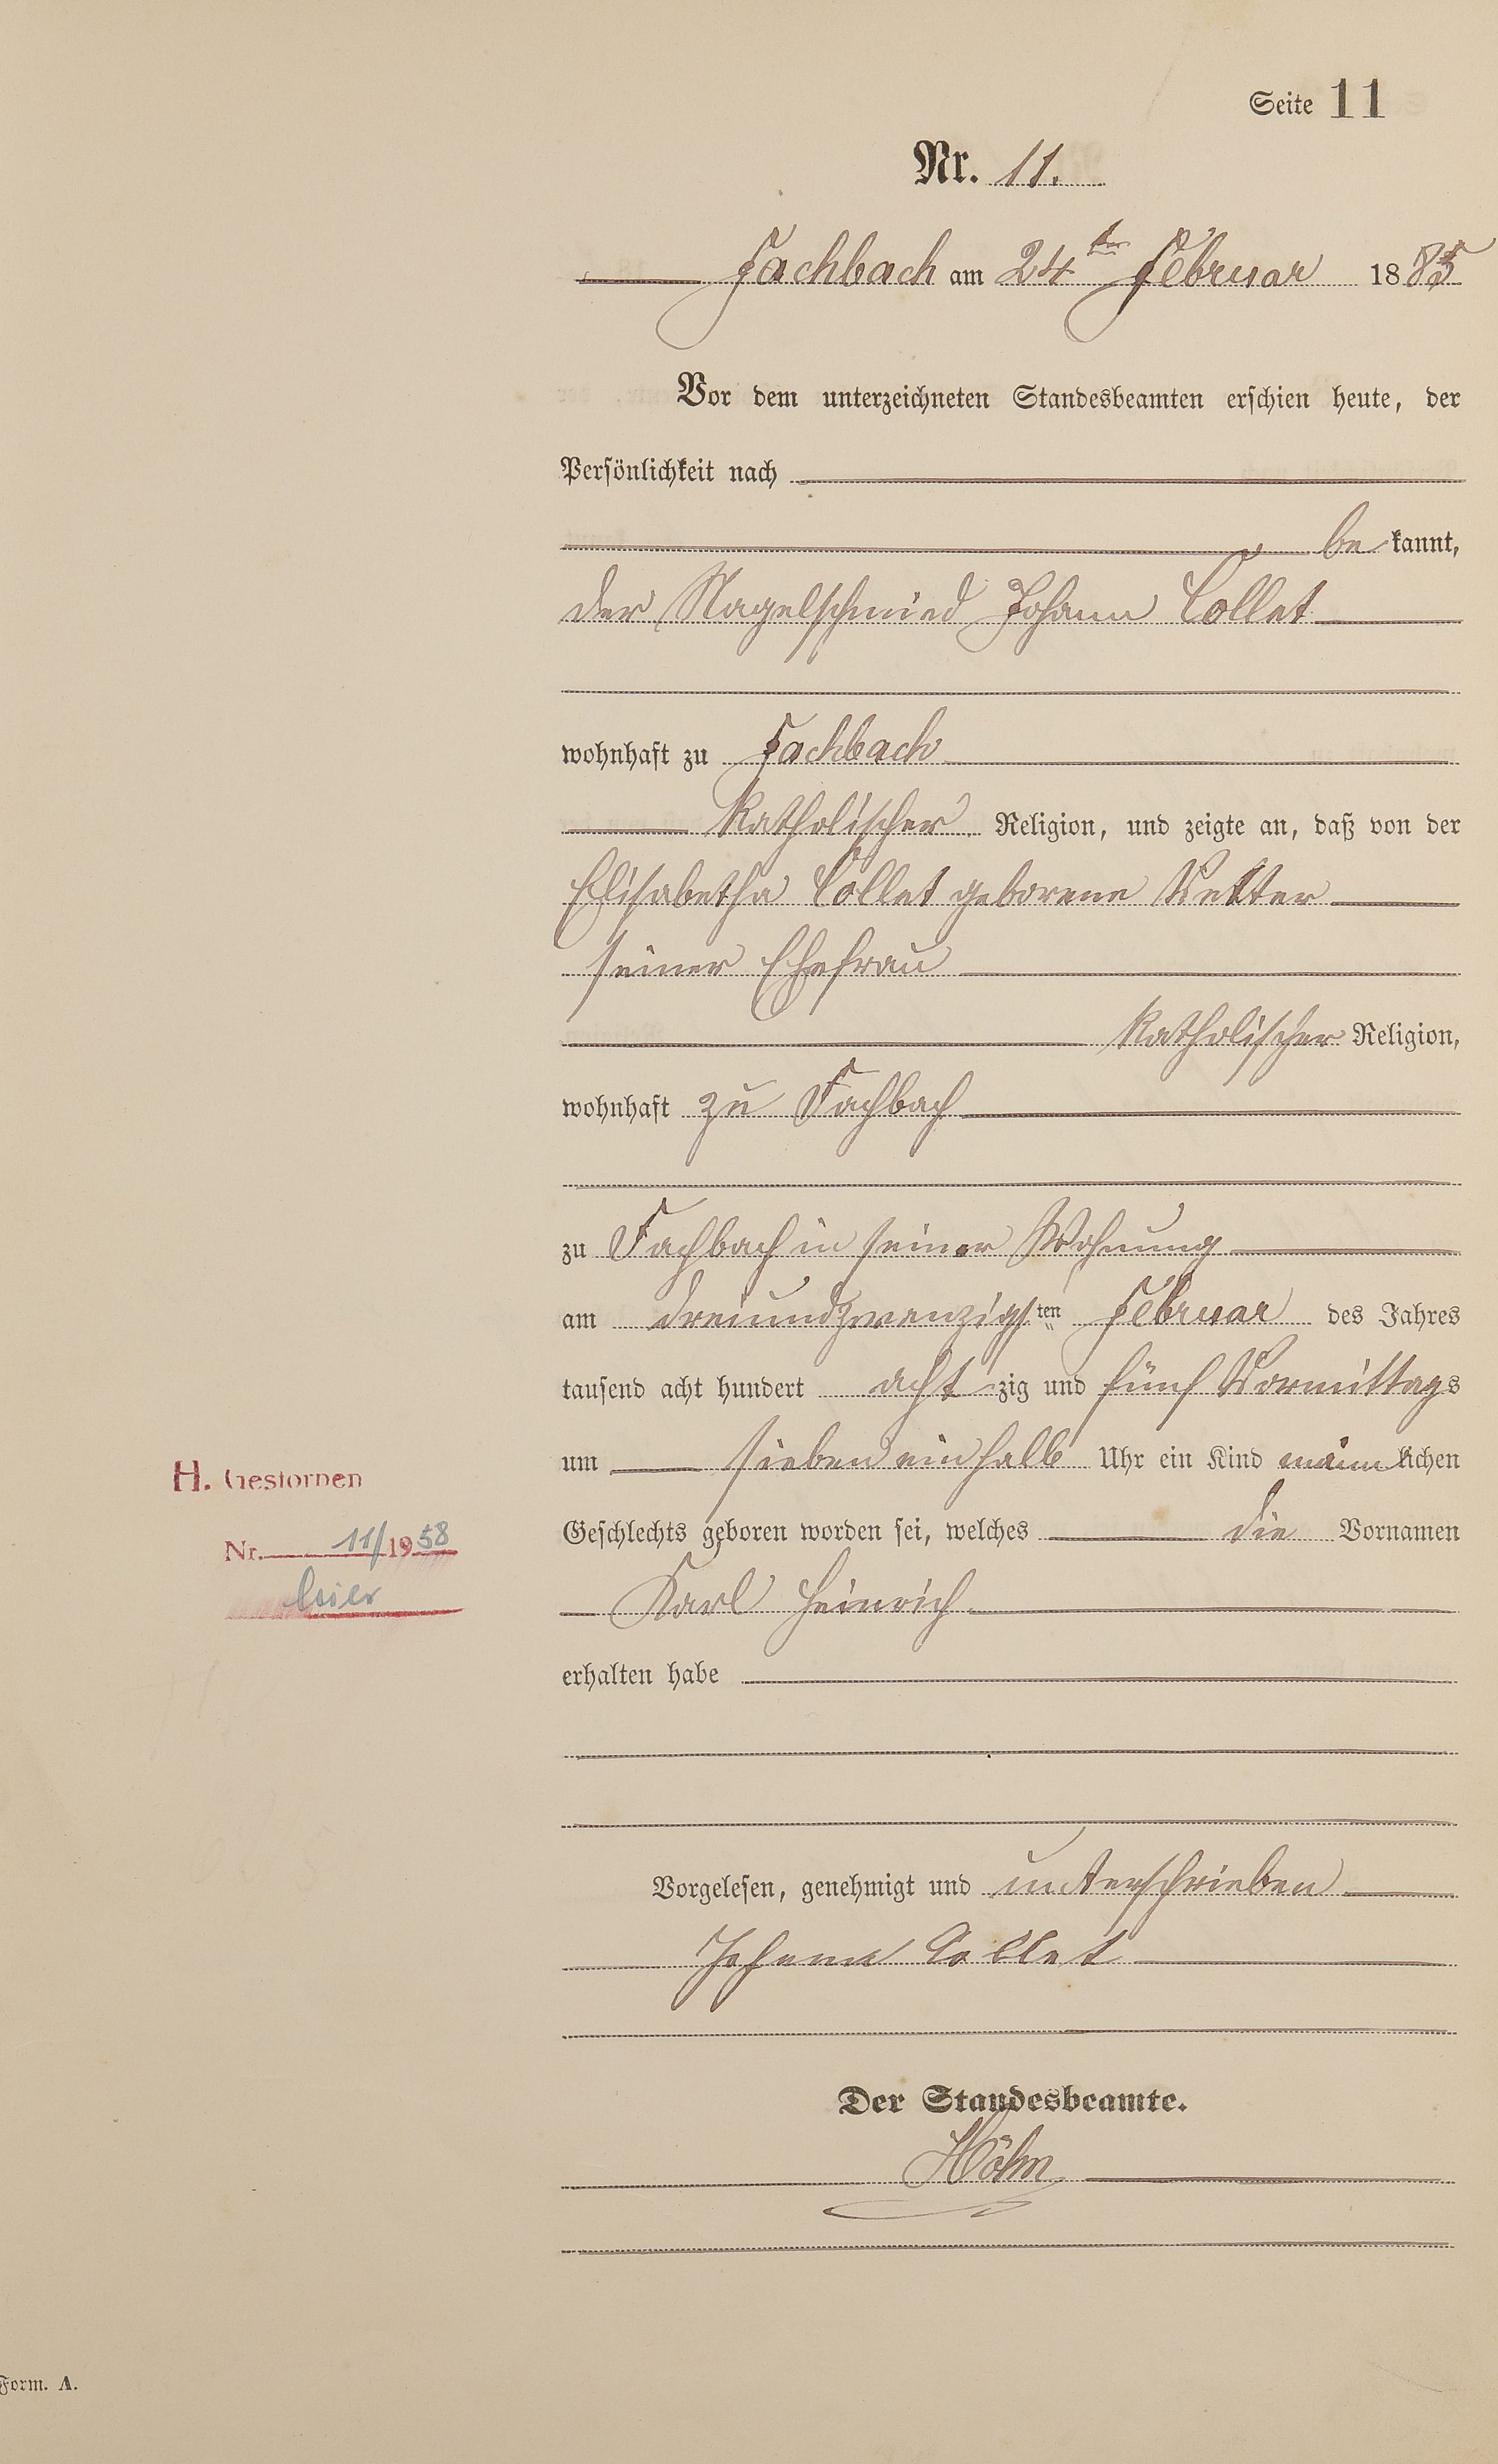 Seite 11
Nr. 11.
Fachbach am 24ten Februar 1885
Vor dem unterzeichneten Standesbeamten erschien heute, der
Persönlichkeit nach
be kannt,
der Nagelschmied Johann Collet
wohnhaft zu Fachbach
katholischer Religion, und zeigte an, daß von der
Elisabetha Collet geborene Vetter
seiner Ehefrau
katholischer Religion,
wohnhaft zu Fachbach
zu Fachbach in seiner Wohnung
am dreiundzwanzigsten Februar des Jahres
tausend acht hundert acht zig und fünf Vormittags
um sieben einhalb Uhr ein Kind männlichen
H. Gestorben
Geschlechts geboren worden sei, welches die Vornamen
Nr. 11/1958
Karl Heinrich
erhalten habe
Vorgelesen, genehmigt und unterschrieben
Johann Collet
Der Standesbeamte.
Form. A.